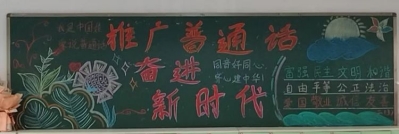 推广普通话
奋进
新时代
同音仟同心
富强 民主 文明 和谐
自由 平等 公正 法治
爱国 敬业 诚信 友善